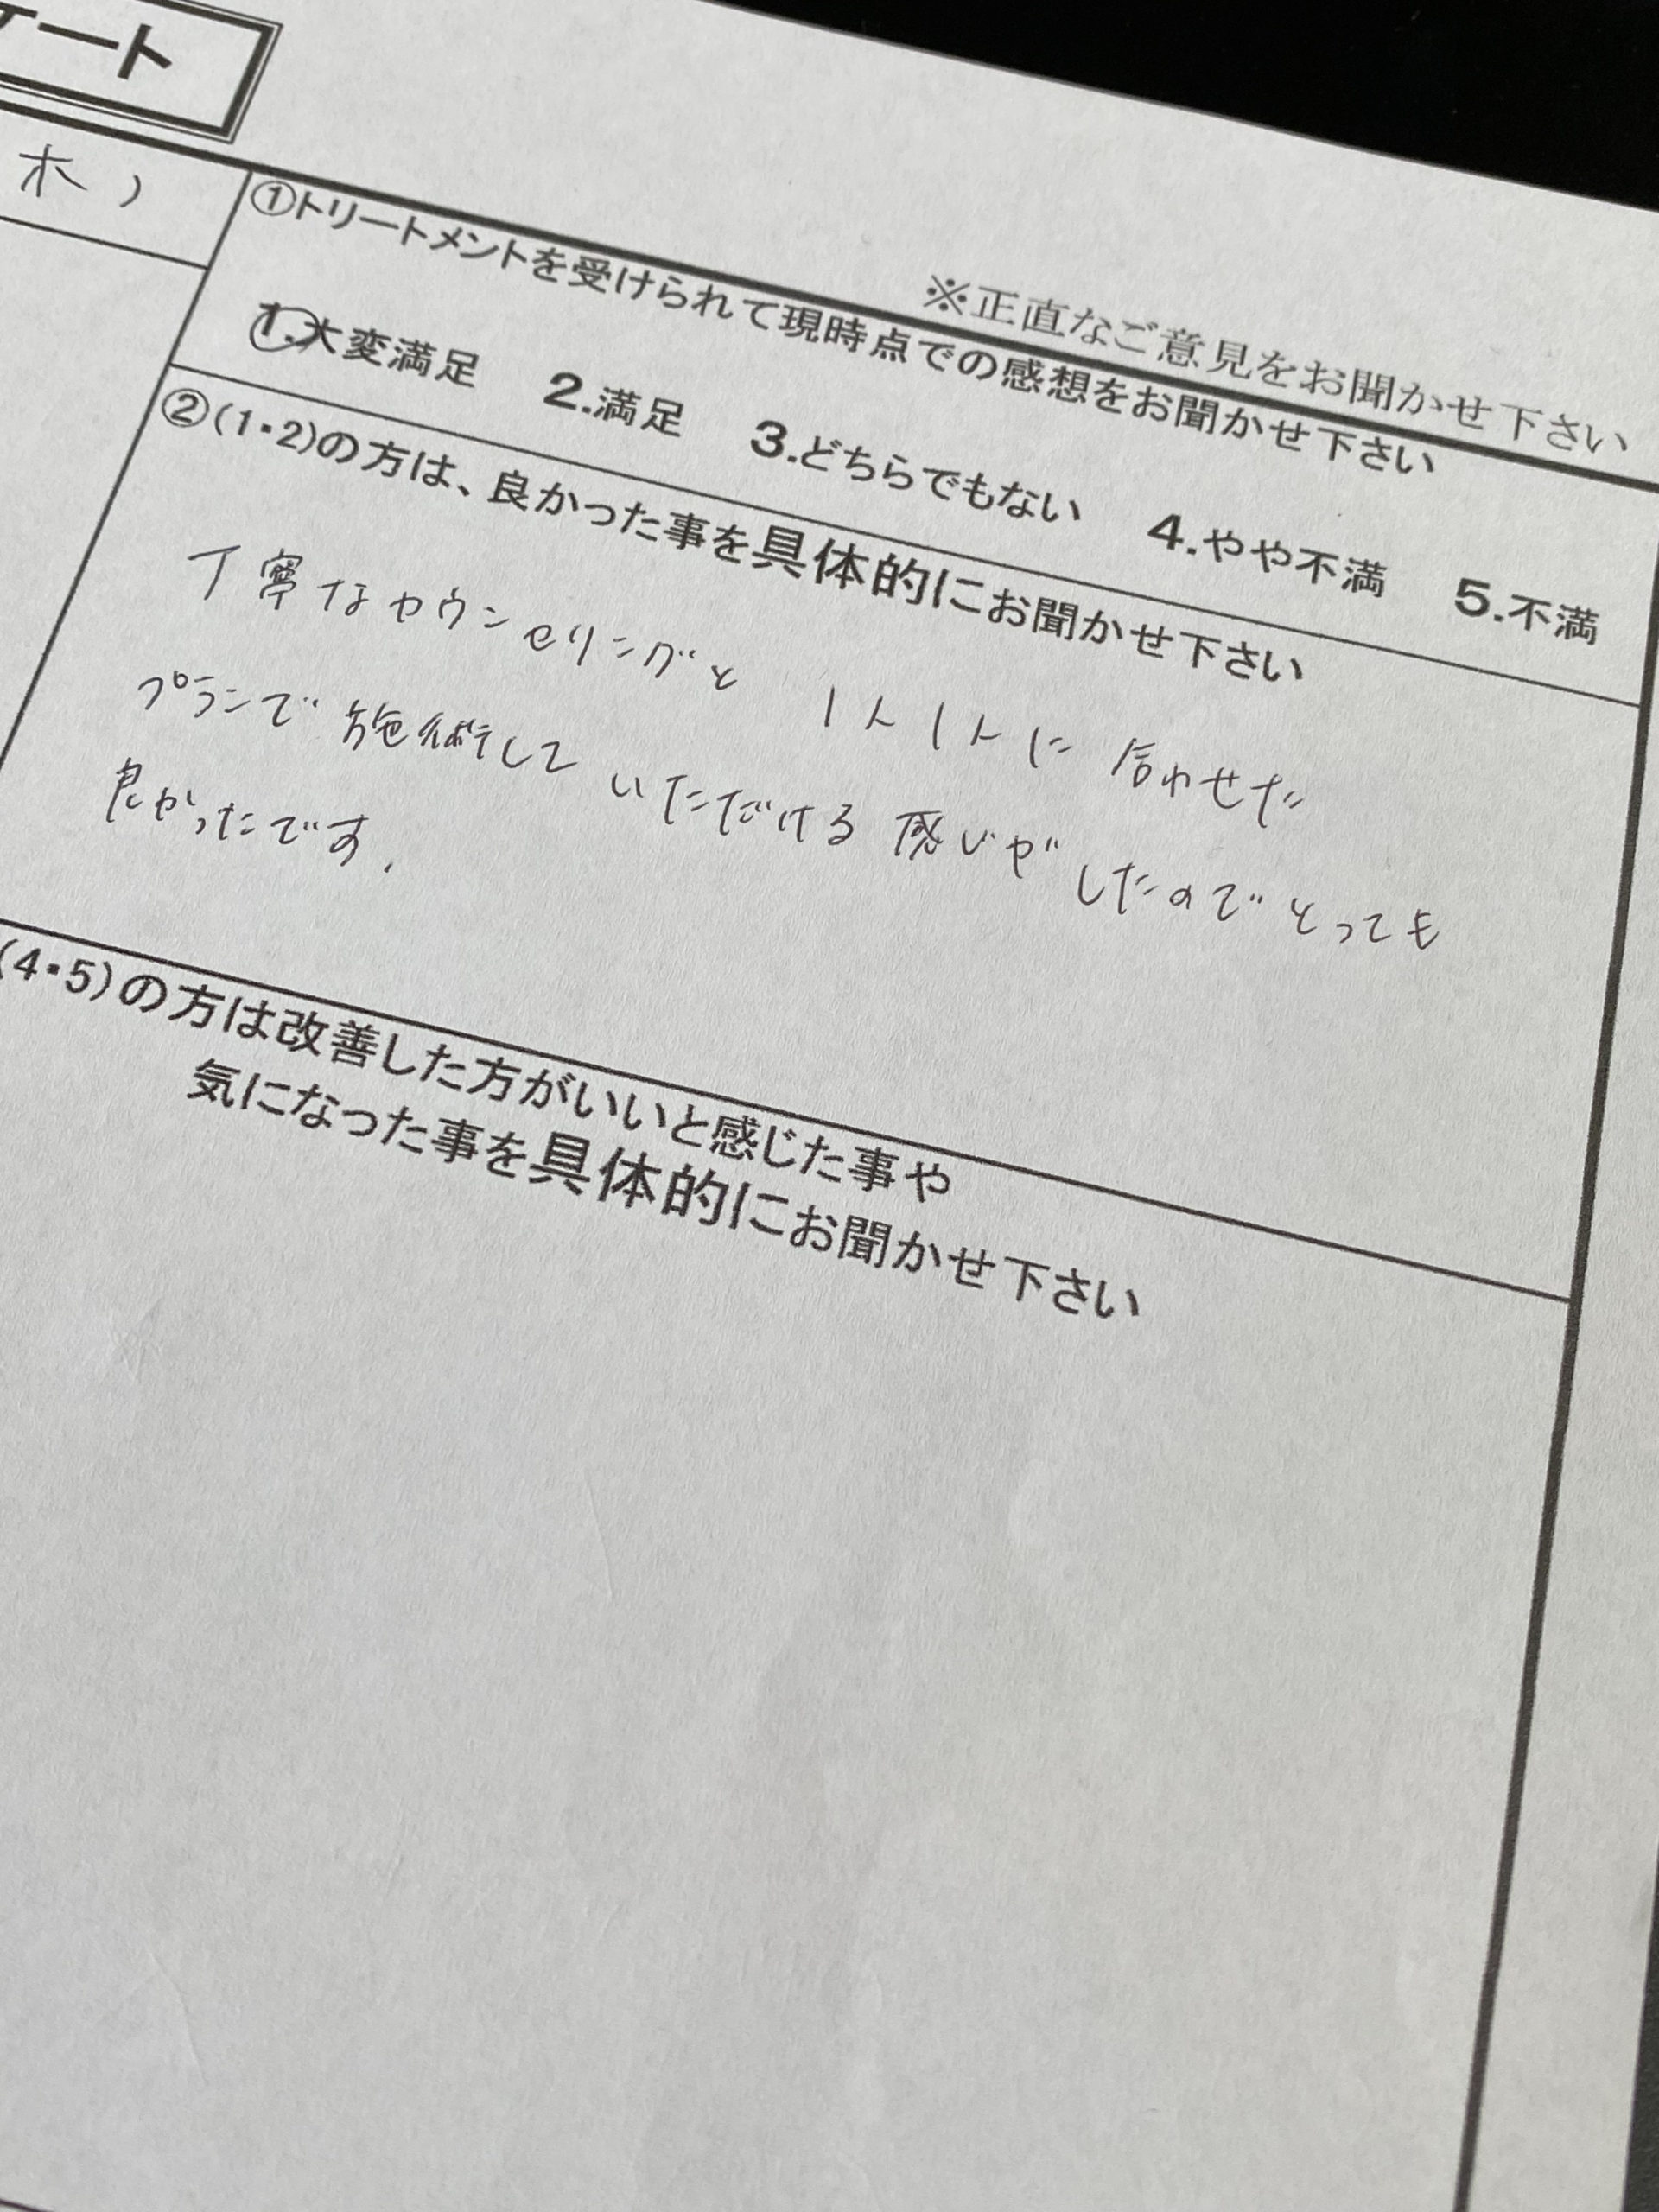 ケート
木)
※正直なご意見をお聞かせ下さい
①トリートメントを受けられて現時点での感想をお聞かせ下さい
1.大変満足 2.満足 3.どちらでもない 4.やや不満 5.不満
②(1・2)の方は、良かった事を具体的にお聞かせ下さい
丁寧なカウンセリングと 1人1人に合わせた
プランで施術していただける感じがしたのでとっても
良かったです.
(4・5)の方は改善した方がいいと感じた事や
気になった事を具体的にお聞かせ下さい